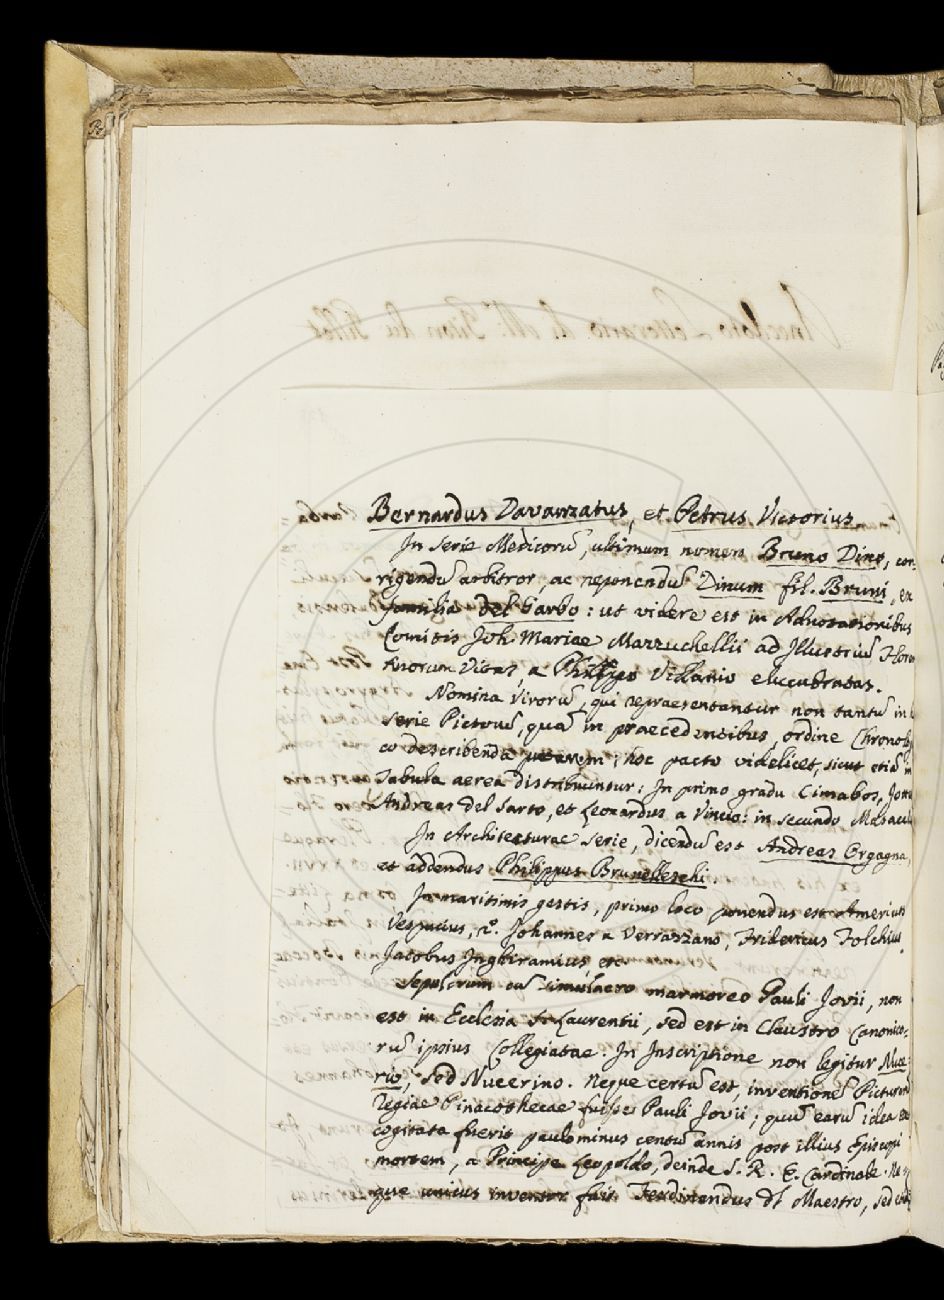 Bernardus Davanzatus, et Petrus Victorius
In serie Medicorũ, ultimum nomen Bruno Dino, cor
rigendũ arbitror, ac reponendũ Dinum fil. Bruni, ex
familia del Garbo: ut videre est in Adnotationibus
Comitis Joh. Mariae Mazzuchellii ad Illustriũ Floren
tinorum Vitas, a Philippo Villanio elucubratas.
Nomina Virorũ, qui repraesentantur non tantũ in
serie Pictorũ, quã in praecedentibus, ordine Chronologi
co describenda putarem; hoc pacto videlicet, sicut etiã in
Tabula aerea distribuuntur: In primo gradu Cimabos,
Andreas del Sarto, et Leonardus a Vincio: in secundo Masaccius
In Architecturae serie, dicendũ est Andreas Orgagna,
et addendus Philippus Brunelleschi
In maritimis gestis, primo loco ponendus est Americus
Vespucius, 2°. Johannes a Verrazzano, Fridericus Folchius
Jacobus Inghiramius etc
Sepulcrum cũ simulacro marmoreo Pauli Jovii, non
est in Ecclesia S. Laurentii, sed est in Claustro Canonico-
rũ ipsius Collegiatae. In Inscriptione non legitur Nuce
rio, sed Nucerino. Neque certũ est, inventionẽ Picturarũ
Regiae Pinacothecae fuisse Pauli Jovii; quũ earũ idea ex
cogitata fuerit paulominus centũ annis post illius Episcopi
mortem, a Principe Leopoldo, deinde S. R. E. Cardinale. Ne
que unicus inventor fuit Ferdinandus del Maestro, sed